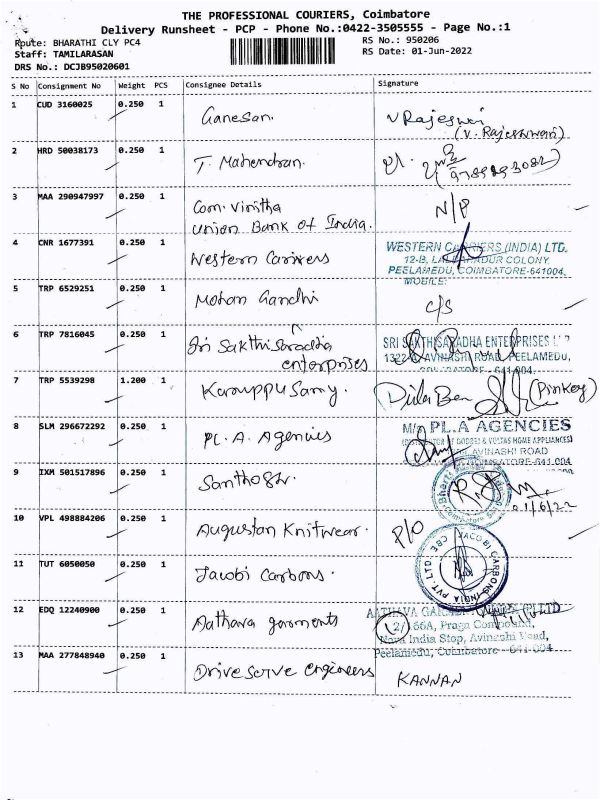 THE PROFESSIONAL COURIERS, Coimbatore
Delivery Runsheet - PCP - Phone No.:0422-3505555 - Page No.:1
Route: BHARATHI CLY PC4
RS No.: 950206
Staff: TAMILARASAN
RS Date: 01-Jun-2022
DRS No.: DCJB95020601
S No Consignment No Weight PCS Consignee Details Signature
1 CUD 3160025 0.250 1 Ganesan. V Rajeswari
(V. Rajeshwari)
2 HRD 50038173 0.250 1 T. Mahendran.
3 MAA 290947997 0.250 1 Com. Vinitha N/P
Union Bank of India.
4 CNR 1677391 0.250 1 Western Carriers WESTERN CARRIERS (INDIA) LTD.
12-B, LAL BAHADUR COLONY,
PEELAMEDU, COIMBATORE-641004.
MOBILE:
5 TRP 6529251 0.250 1 Mohan Gandhi C/S
6 TRP 7816045 0.250 1 Sri Sakthi Saradha SRI SAKTHI SARADHA ENTERPRISES
enterprises 1322 AVINASHI ROAD, PEELAMEDU,
COIMBATORE - 641 004.
7 TRP 5539298 1.200 1 Karuppusamy. (Pinkey)
8 SLM 296672292 0.250 1 PL. A. Agencies M/s PL.A AGENCIES
GODREJ & VOLTAS HOME APPLIANCES)
AVINASHI ROAD
COIMBATORE-641 004
9 IXM 501517896 0.250 1 Santhosh.
10 VPL 498884206 0.250 1 Augustan Knitwear. P/O
11 TUT 6050050 0.250 1 Jacobi Carbons. JACOBI CARBONS INDIA PVT. LTD. CBE
12 EDQ 12240900 0.250 1 Aathava garments AATHAVA GARMENTS (P) LTD
12/166A, Praga Compound,
Nava India Stop, Avinashi Road,
Peelamedu, Coimbatore - 641 004
13 MAA 277848940 0.250 1 Drive serve engineers KANNAN